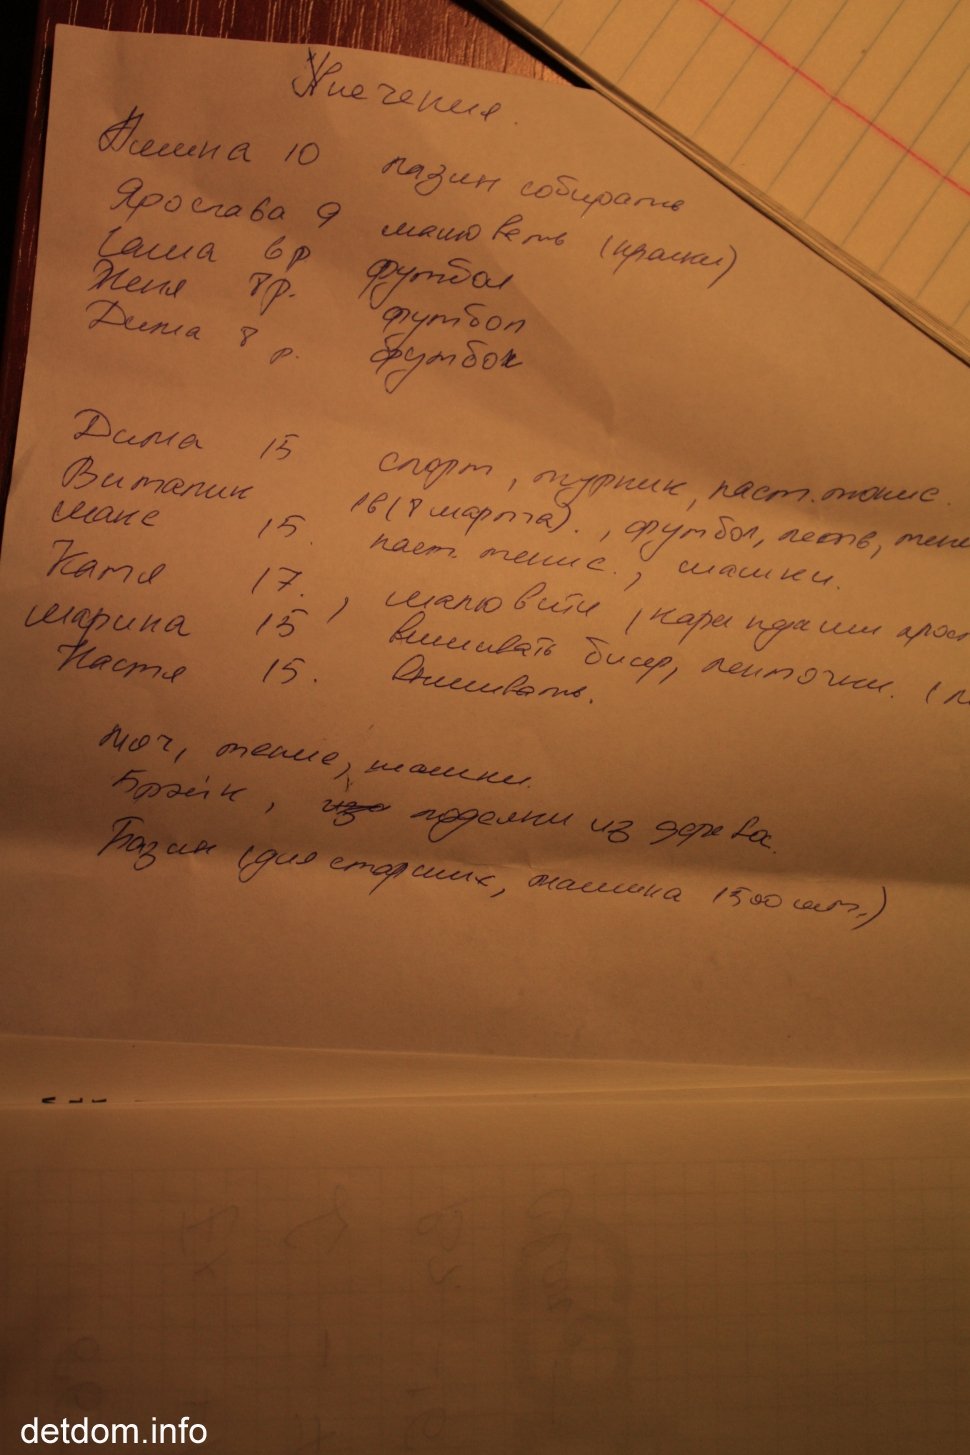 пазли собирать
Ярослава 9 малювать (краски)
Саша 6 р футбол
Женя 8 р. футбол
Дима 8 р. футбол
Дима 15 спорт, турник, наст. тенис.
Виталик 16 (8 марта)., футбол,
Макс 15. наст. тенис., шашки.
Катя 17., малювати,
Марина 15 вишивать бисер, ленточки.
Настя 15. вышивать.
мяч, тенис, шашки.
Брэйк, из поделки из дерева.
Пазли (для старших, машина 1500 шт.)
detdom.info